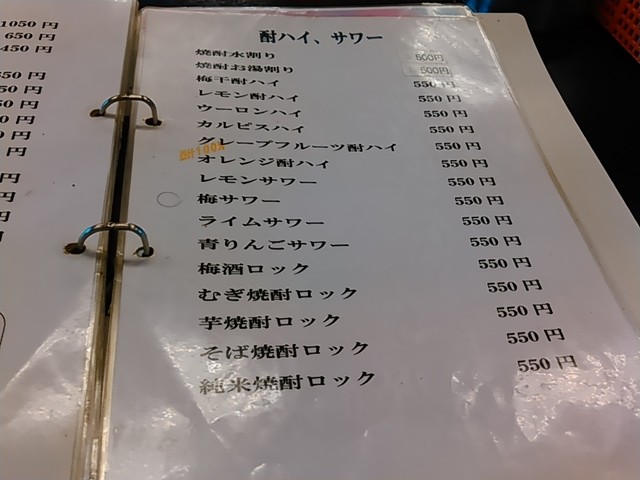 1050 円
650 円
450 円
50 円
50 円
酎ハイ、サワー
焼酎水割り 500円
焼酎お湯割り 500円
梅干酎ハイ 550 円
レモン酎ハイ 550 円
ウーロンハイ 550 円
カルピスハイ 550 円
グレープフルーツ酎ハイ 550 円
オレンジ酎ハイ 550 円
レモンサワー 550 円
梅サワー 550 円
ライムサワー 550 円
青りんごサワー 550 円
梅酒ロック 550 円
むぎ焼酎ロック 550 円
芋焼酎ロック 550 円
そば焼酎ロック 550 円
純米焼酎ロック 550 円